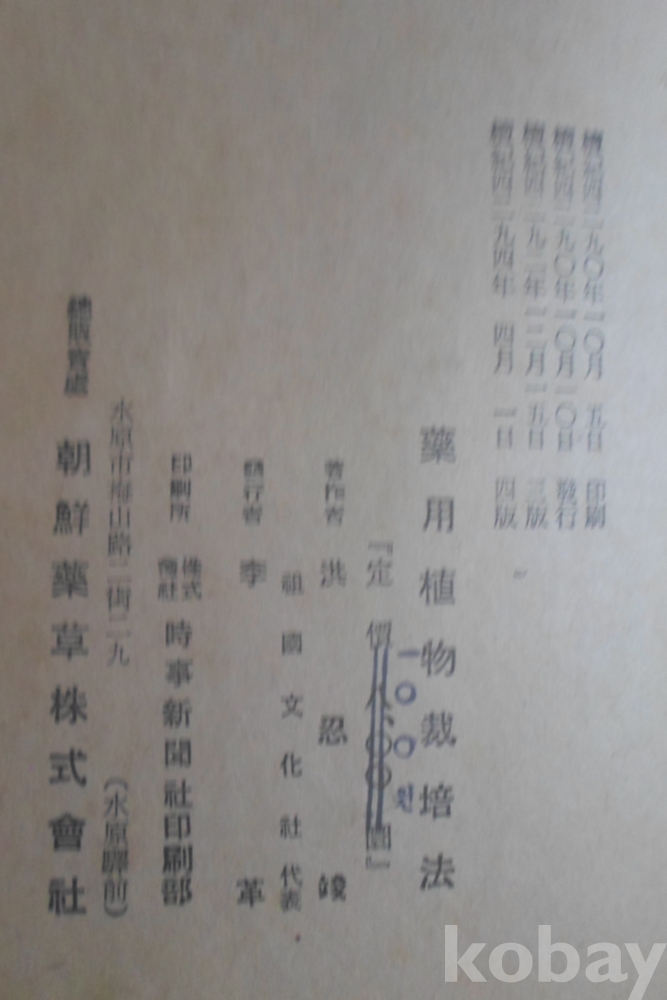 檀紀四二九〇年一〇月 五日 印刷
檀紀四二九〇年一〇月一〇日 發行
檀紀四二九二年一二月一五日 三版
檀紀四二九四年 四月 一日 四版
藥用植物栽培法
『定價 八〇〇圜』
一〇〇원
著作者 洪忍竣
祖國文化社代表
發行者 李革
印刷所 株式會社 時事新聞社印刷部
水原市梅山路二街二九 (水原驛前)
總販賣處 朝鮮藥草株式會社
kobay